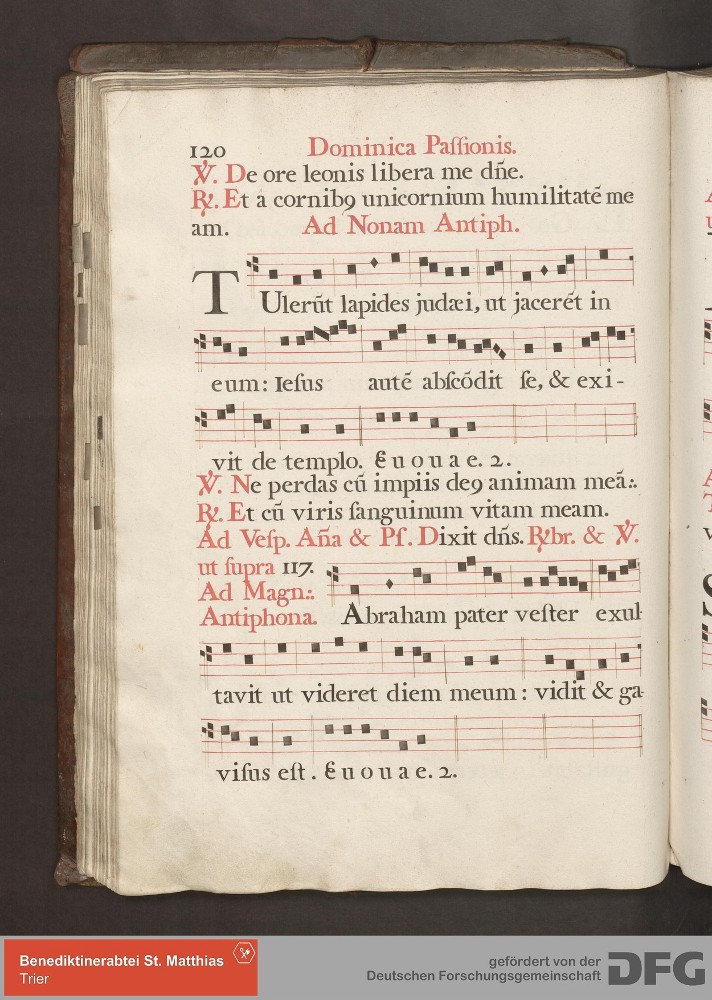 120 Dominica Paſſionis.
℣. De ore leonis libera me dn̄e.
℟. Et a cornibꝯ unicornium humilitatē me
am. Ad Nonam Antiph.
TUlerūt lapides judæi, ut jacerēt in
eum: Ieſus autē abſcōdit ſe, & exi-
vit de templo. Euouae. 2.
℣. Ne perdas cū impiis deꝯ animam meā:.
℟. Et cū viris ſanguinum vitam meam.
Ad Veſp. An̄a & Pſ. Dixit dn̄s. ℟br. & ℣.
ut ſupra 117.
Ad Magn:.
Antiphona. Abraham pater veſter exul-
tavit ut videret diem meum: vidit & ga-
viſus eſt. Euouae. 2.
Benediktinerabtei St. Matthias
Trier
gefördert von der
Deutschen Forschungsgemeinschaft DFG